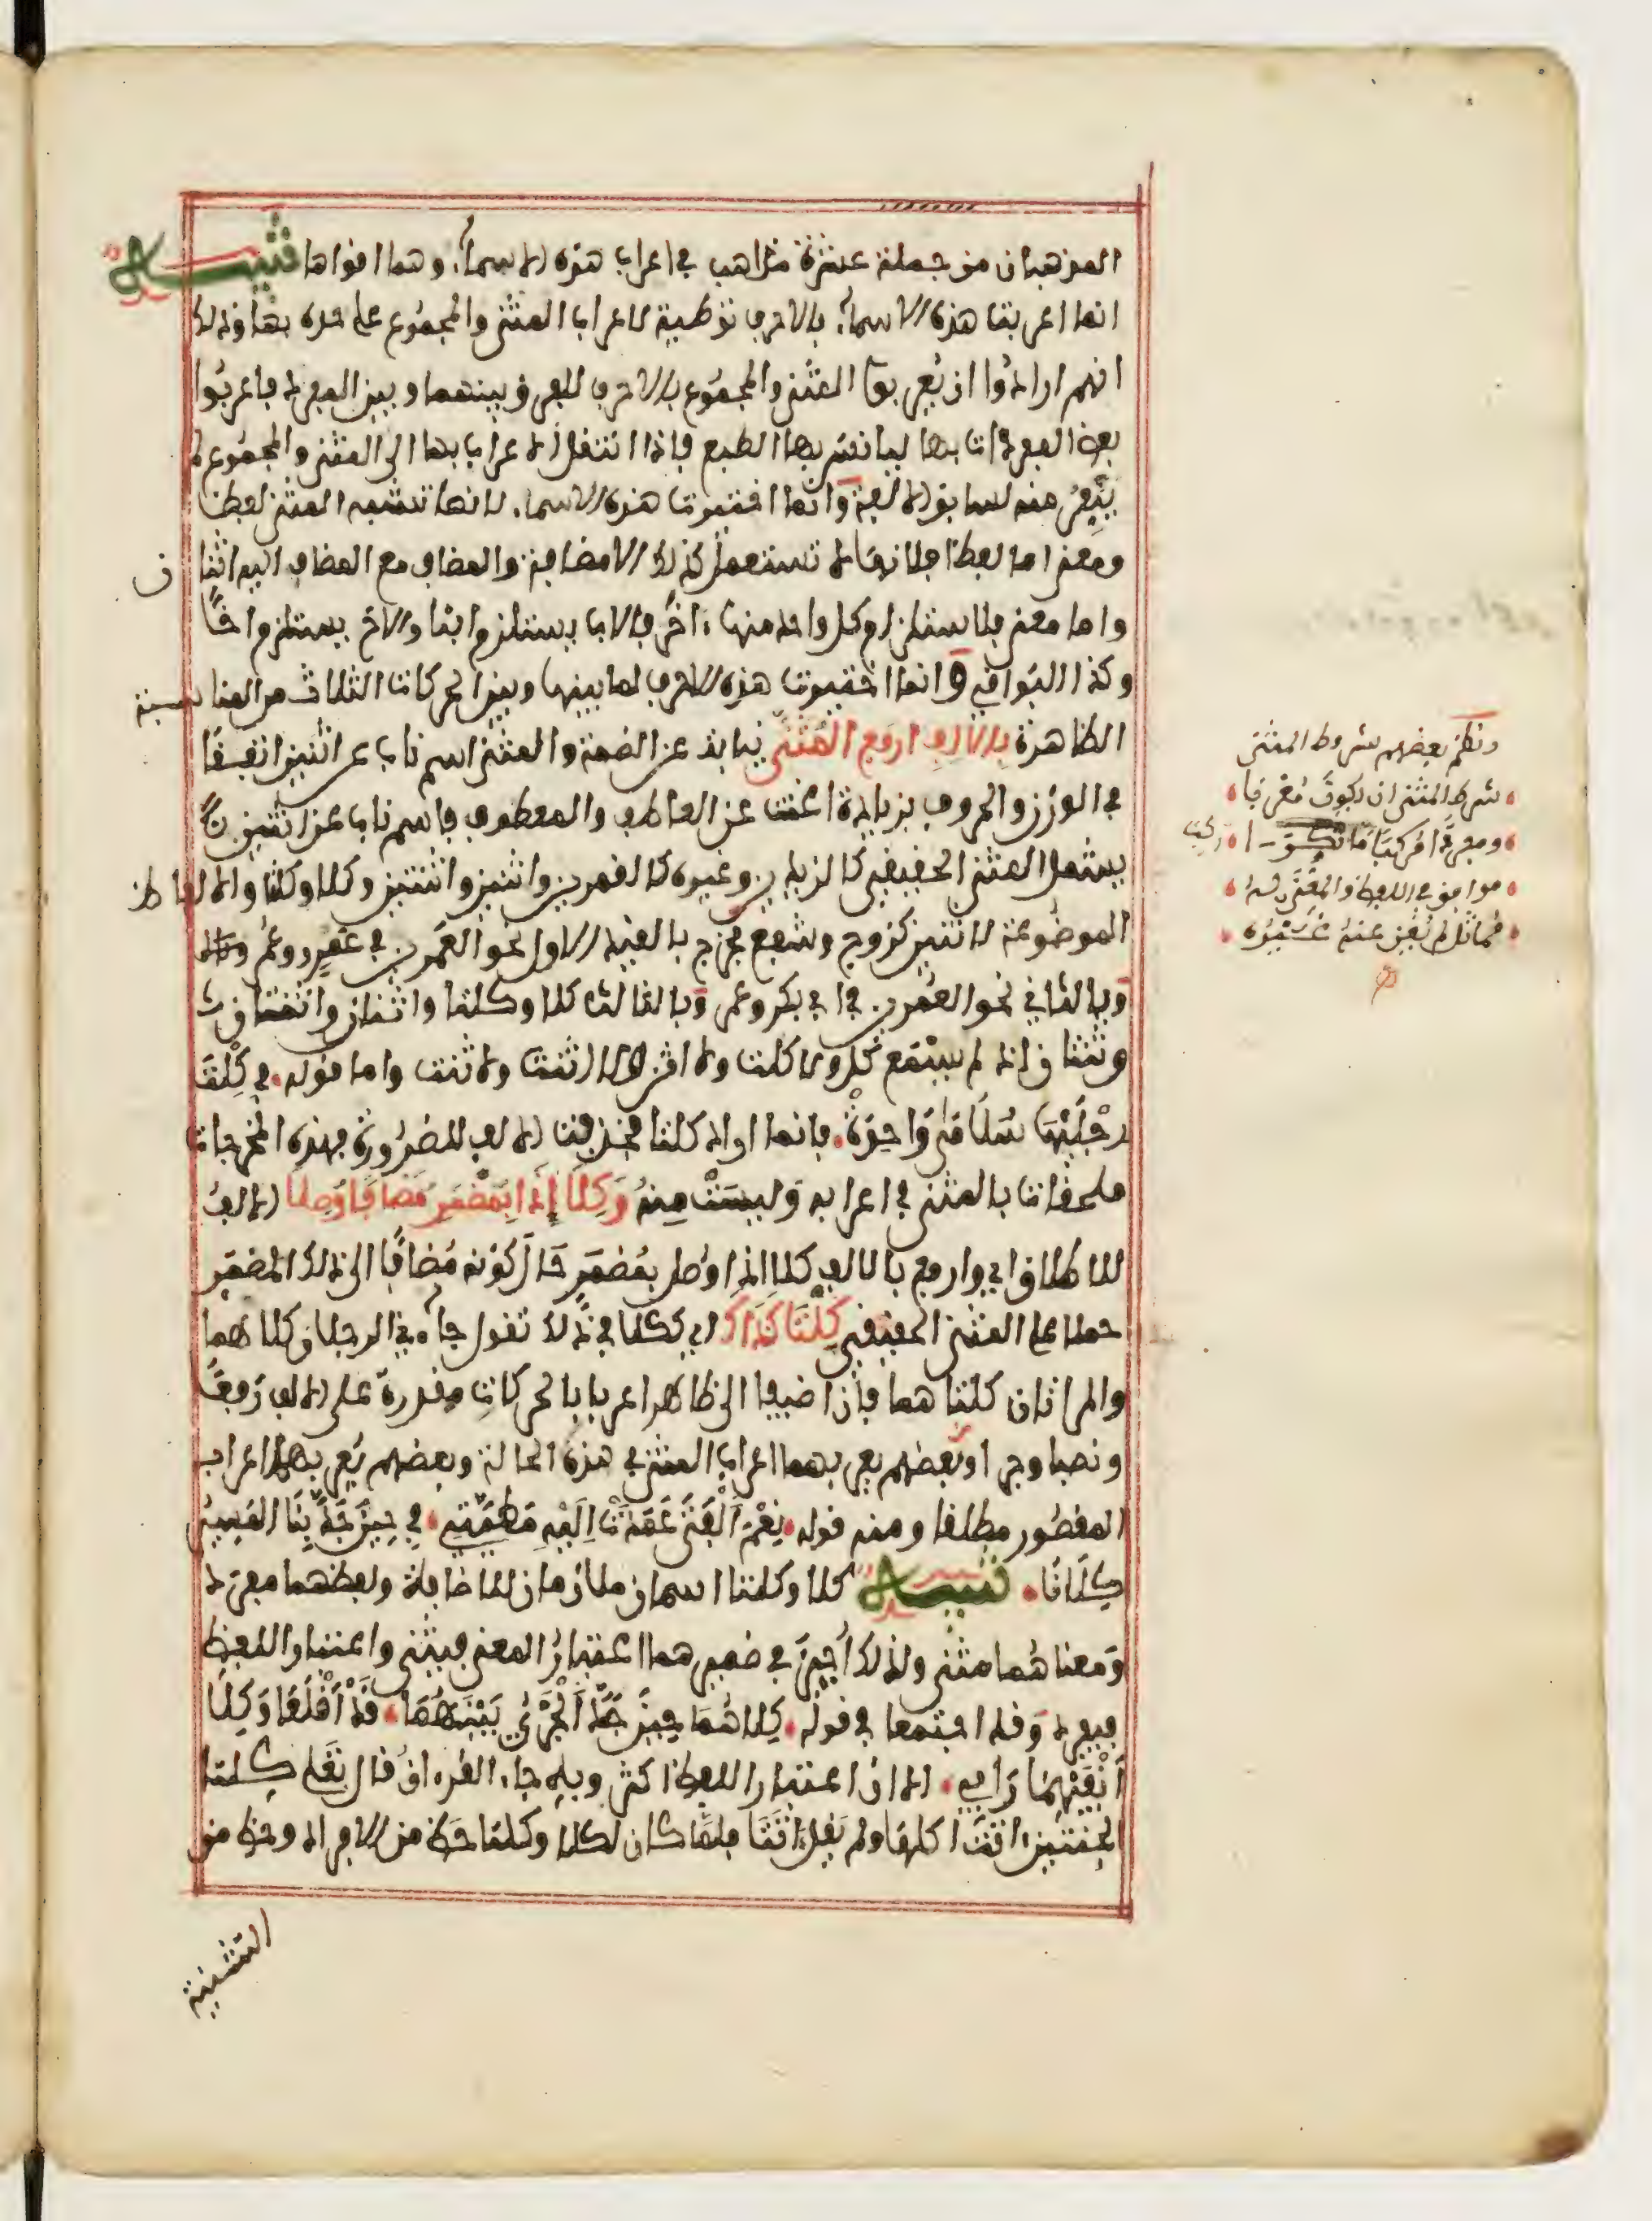 المذهبان من جملة عشرة مذاهب في اعراب هذه الاسماء وهما اقواها تنبيه
انما اعربت هذه الاسماء بالاحرف توطية لاعراب المثنى والمجموع على حده بها وذلك
انهم ارادوا ان يعربوا المثنى والمجموع بالاحرف للفرق بينهما وبين المفرد فاعربوا
بعض المفردات بها ليانس بها الطبع فاذا انتقل الاعراب بها الى المثنى والمجموع لم
ينفر منه لسابق الالفة وانما اختيرت هذه الاسماء لانها تشبه المثنى لفظا
ومعنى اما لفظا فلانها لا تستعمل كذلك الا مضافة والمضاف مع المضاف اليه اثنان
واما معنى فلاستلزام كل واحد منها ءاخر فالاب يستلزم ابنا والاخ يستلزم اخا
وكذا البواقي وانما اختيرت هذه الاحرف لما بينها وبين الحركات الثلاث من المناسبة
الظاهرة بالالف ارفع المثنى نيابة عن الضمة والمثنى اسم ناب عن اثنين اتفقا
في الوزن والحروف بزيادة اغنت عن العاطف والمعطوف فاسم ناب عن اثنين
يشمل المثنى الحقيقي كالزيدين وغيره كالقمرين واثنين واثنتين وكلا وكلتا والالفاظ
الموضوعة لاثنين كزوج وشفع فخرج بالقيد الاول نحو العمرين في عمرو وعمر
وبالثاني نحو العمرين في ابي بكر وعمر وبالثالث كلا وكلتا واثنان واثنتان
وثنتان اذ لم يسمع كل ولا كلت ولا اثن ولا اثنت ولا ثنت واما قوله في كلت
رجليها سلامى واحدة فانما اراد كلتا فحذفت الالف للضرورة فهذه المخرجات
ملحقات بالمثنى في اعرابه وليست منه وكلا اذا بمضمر مضافا وصلا الالف
للاطلاق اي وارفع بالالف كلا اذا وصل بمضمر حال كونه مضافا الى ذلك المضمر
حملا على المثنى الحقيقي كلتا كذاك اي ككلا في ذلك تقول جاءني الرجلان كلاهما
والمراتان كلتاهما فان اضيفا الى ظاهر اعربا بالحركات مقدرة على الالف رفعا
ونصبا وجرا وبعضهم يعربهما اعراب المثنى في هذه الحالة وبعضهم يعربهما اعراب
المقصور مطلقا ومنه قوله نعم الفتى عمدت اليه مطيتي في حين جد بنا المسير
كلانا تنبيه كلا وكلتا اسمان ملازمان للاضافة ولفظهما مفرد
ومعناهما مثنى ولذلك اجيز في ضميرهما اعتبار المعنى فيثنى واعتبار اللفظ
فيفرد وقد اجتمعا في قوله كلاهما حين جد الجري بينهما قد اقلعا وكلا
انفيهما رابي الا ان اعتبار اللفظ اكثر وبه جاء القرءان قال تعلى كلتا
الجنتين ءاتت اكلها ولم يقل ءاتتا فلما كان لكلا وكلتا حظ من الافراد وحظ من
التثنية
ونظم بعضهم شروط المثنى
شرط المثنى ان يكون معربا
ومفردا منكرا ما ركبا
موافق في اللفظ والمعنى له
مماثل لم يغن عنه غيره